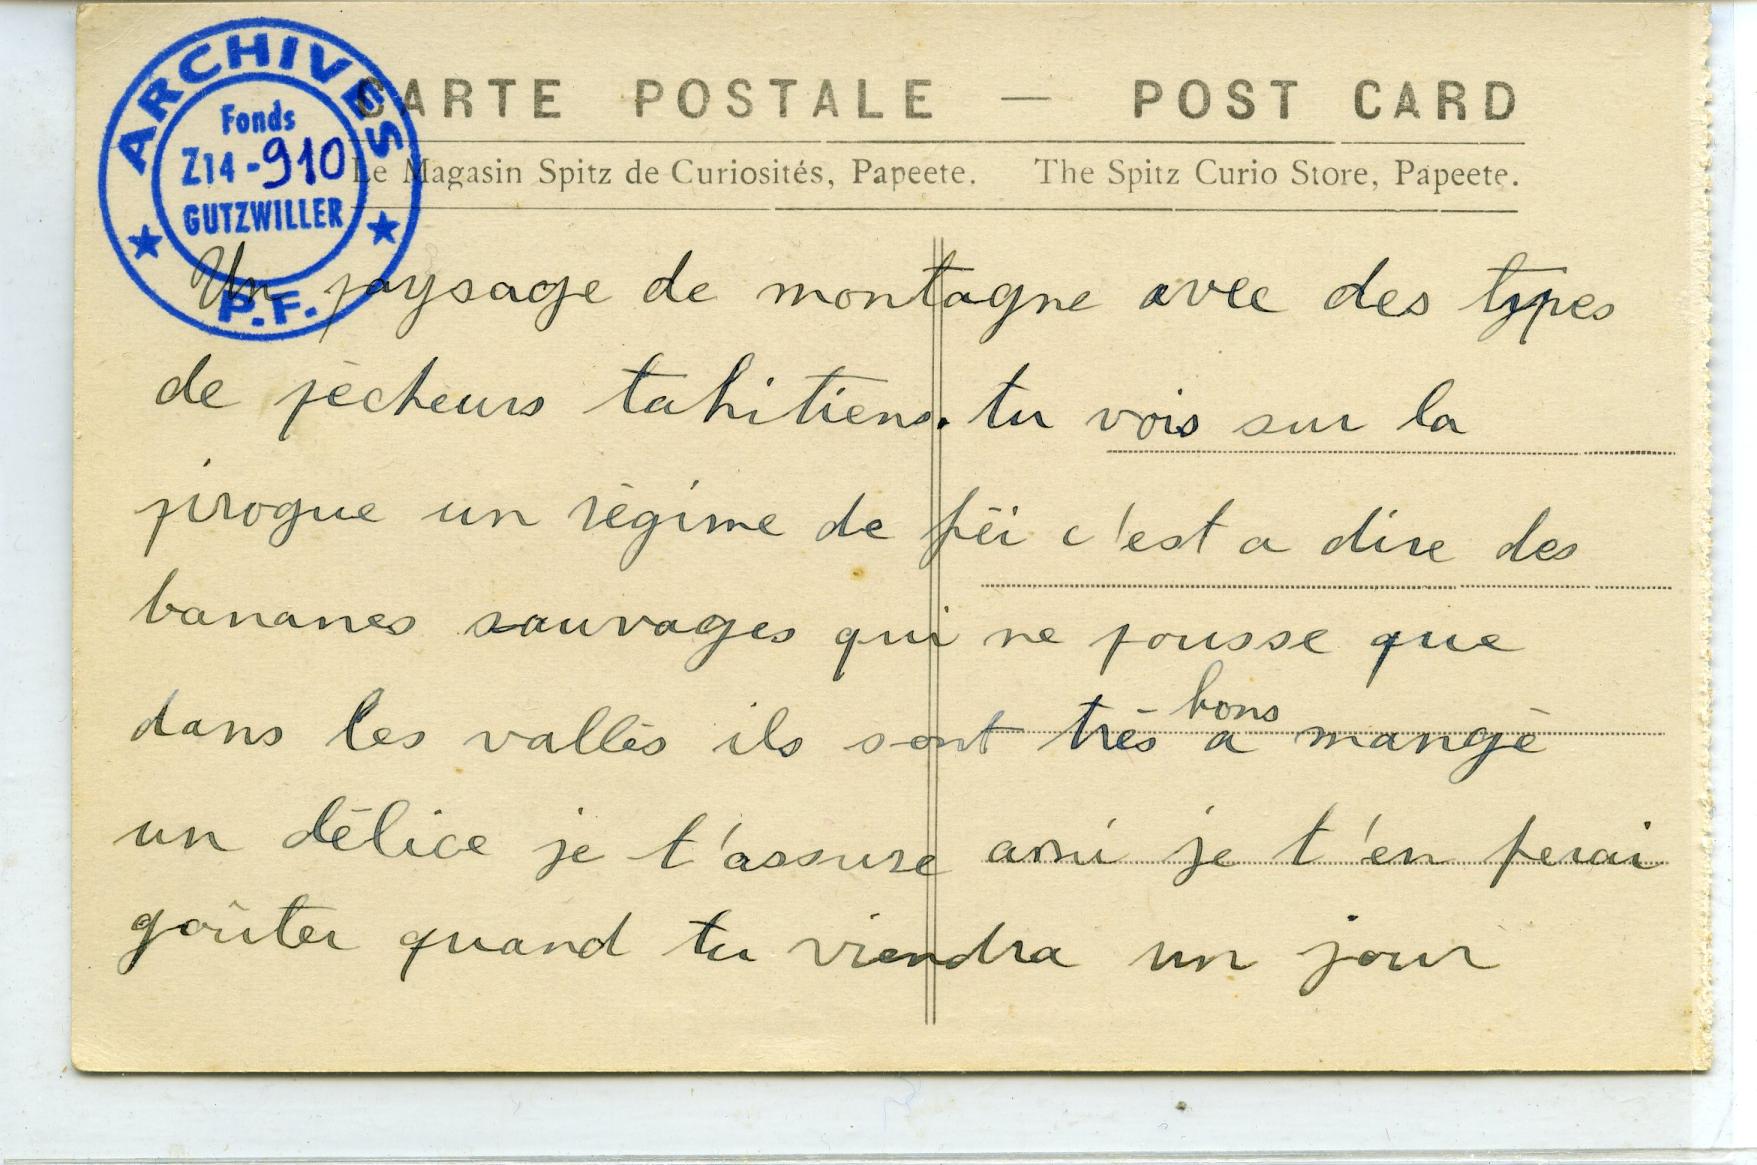 ARCHIVES
Fonds
Z14-910
GUTZWILLER
P.F.
CARTE POSTALE — POST CARD
Le Magasin Spitz de Curiosités, Papeete. The Spitz Curio Store, Papeete.
Un paysage de montagne avec des types
de pècheurs tahitiens. tu vois sur la
pirogue un règime de fëi c'est a dire des
bananes sauvages qui ne pousse que
dans les vallès ils sont très bons a mangè
un dèlice je t'assure ami je t'en ferai
goûter quand tu viendra un jour